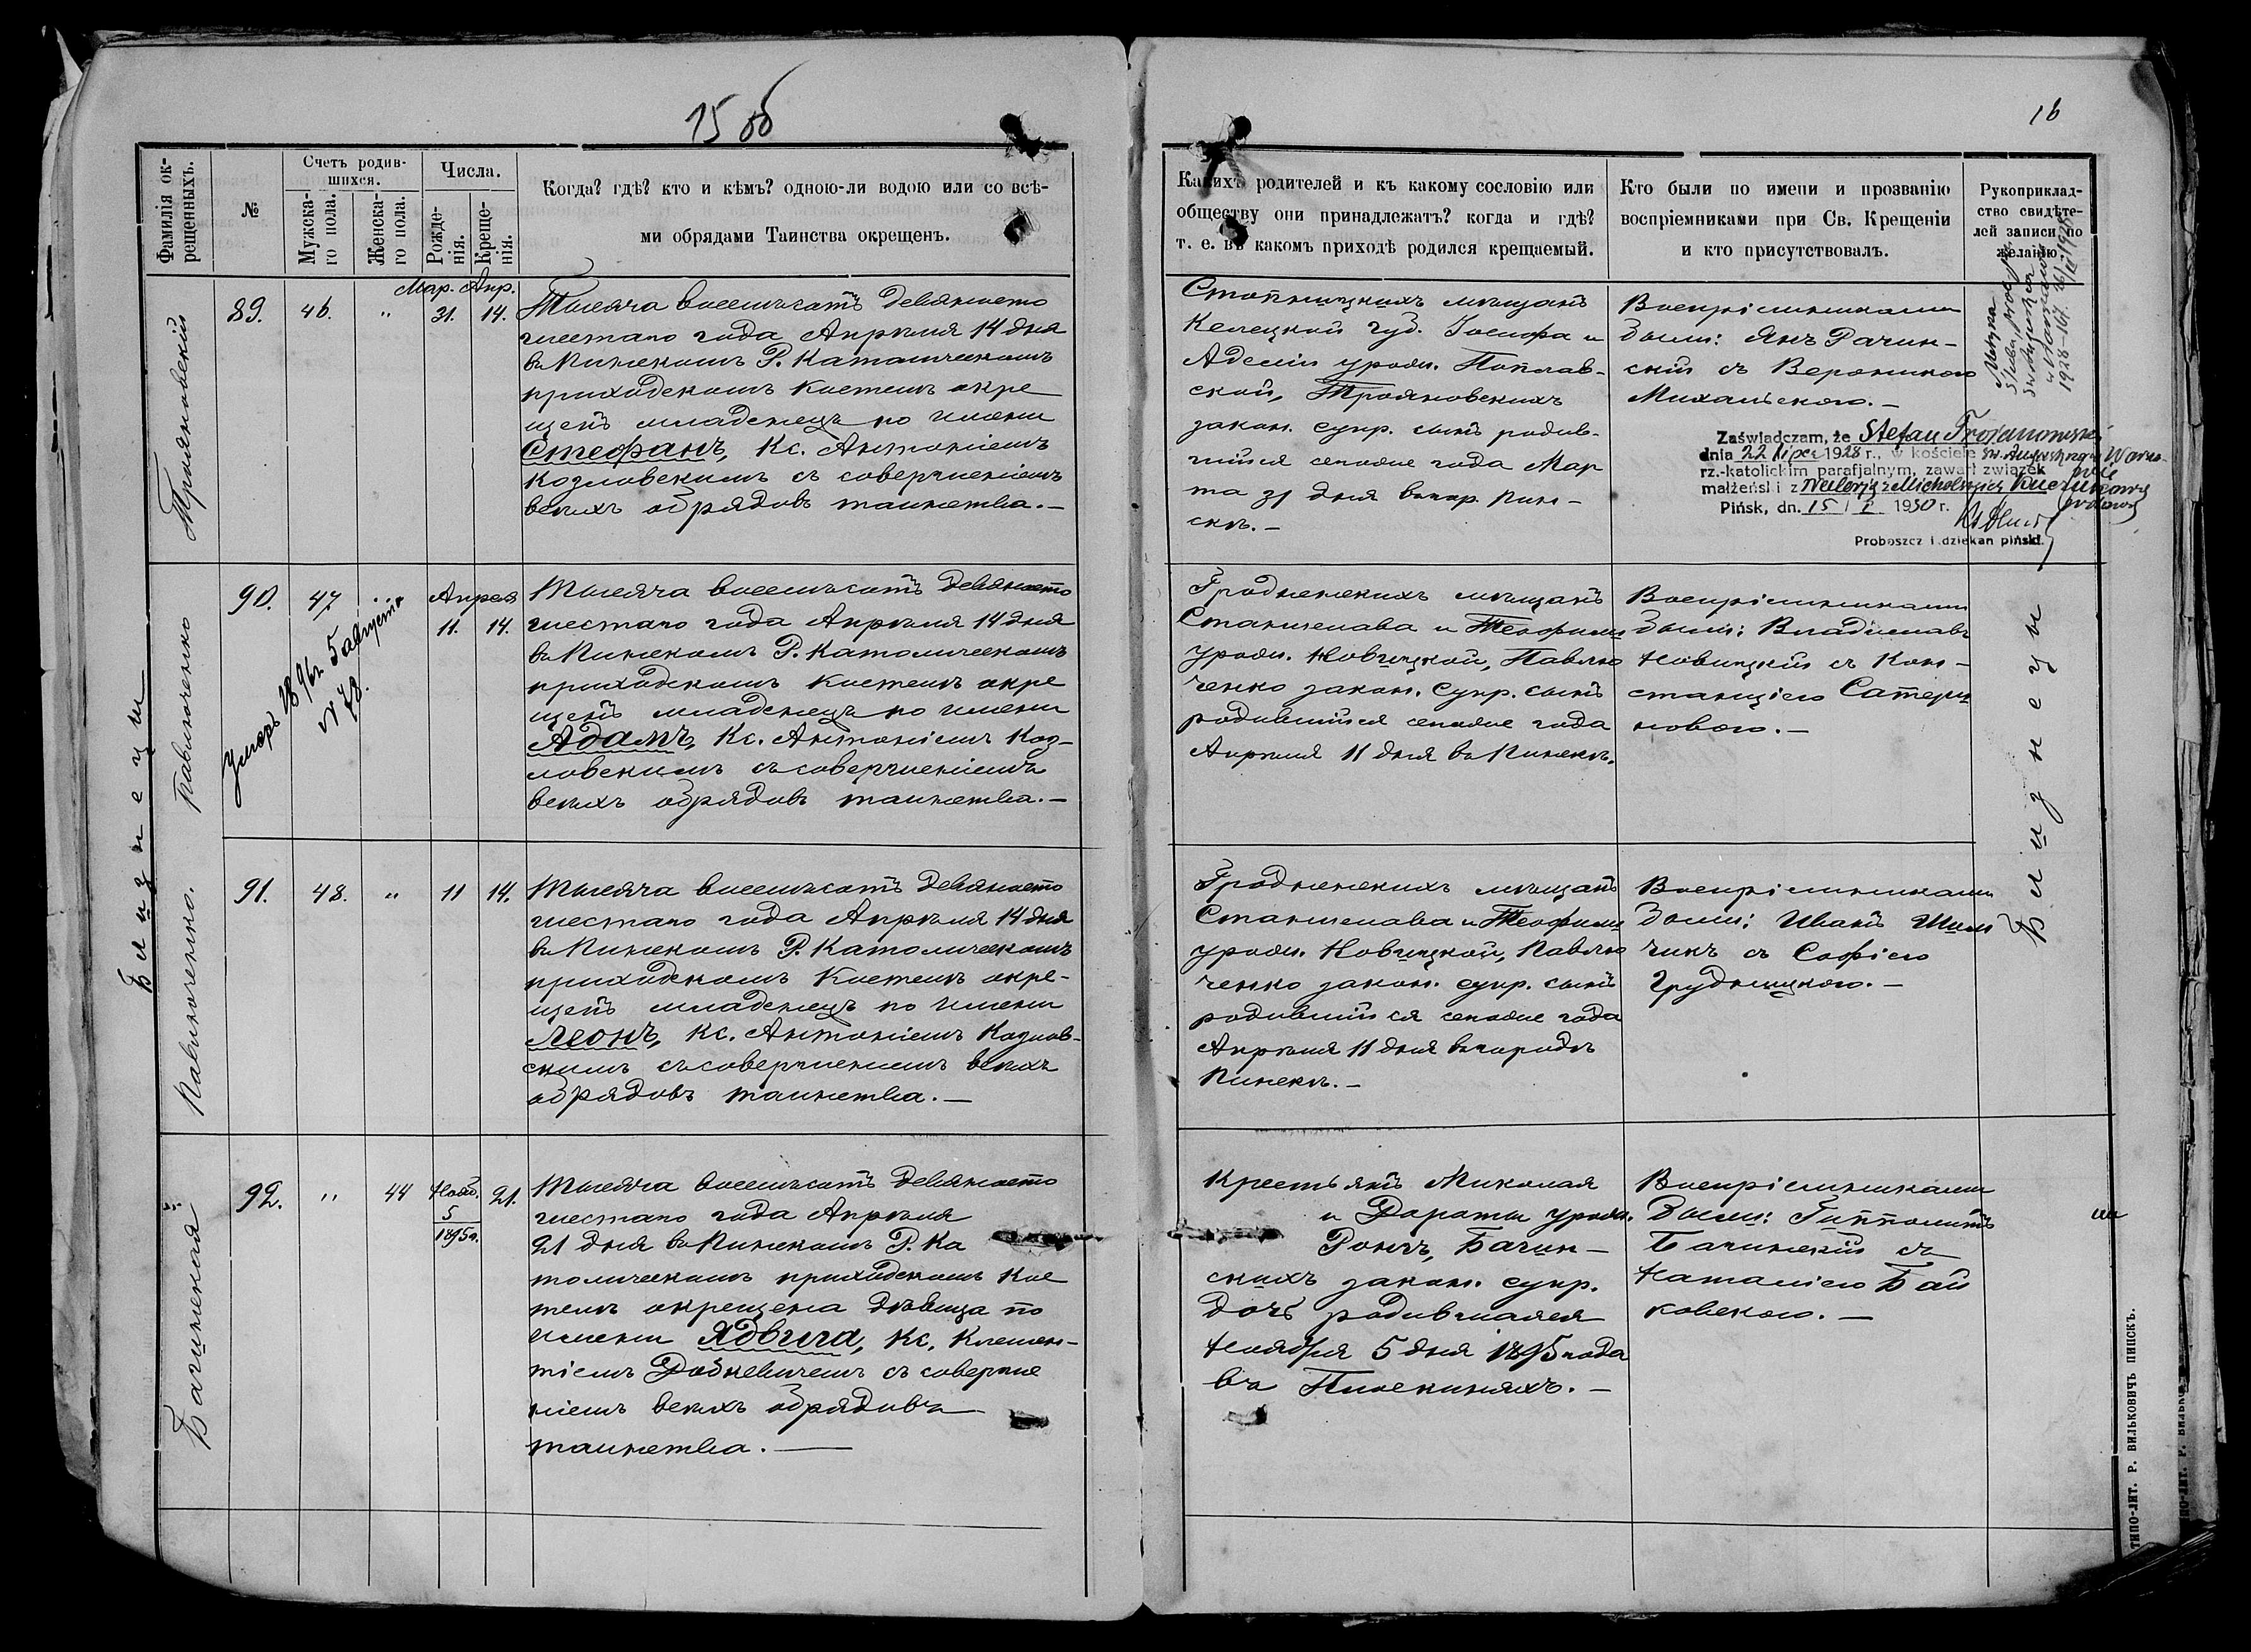 15 об
16
Фамилія ок-
рещенныхъ.
№
Счетъ родив-
шихся.
Мужска-
го пола.
Женска-
го пола.
Числа.
Рожде-
нія.
Креще-
нія.
Когда? гдѣ? кто и кѣмъ? одною-ли водою или со всѣ-
ми обрядами Таинства окрещенъ.
Какихъ родителей и къ какому сословію или
обществу они принадлежатъ? когда и гдѣ?
т. е. въ какомъ приходѣ родился крещаемый.
Кто были по имени и прозванію
воспріемниками при Св. Крещеніи
и кто присутствовалъ.
Рукоприклад-
ство свидѣте-
лей записи по
желанію
Трояновскій
89.
46.
"
Мар.
31.
Апр.
14.
Тысяча восемьсотъ девяносто
шестаго года Апрѣля 14 дня
въ Пинскомъ Р. Католическомъ
приходскомъ костелѣ окре
щенъ младенецъ по имени
Стефанъ, Кс. Антоніемъ
Козловскимъ съ совершеніемъ
всѣхъ обрядовъ таинства.—
Стопницкихъ мѣщанъ
Келецкой губ. Іосифа и
Аделіи урожд. Поплав-
ской, Трояновскихъ
закон. супр. сынъ родив-
шійся сегоже года Мар
та 31 дня въ гор. Пин-
скѣ.—
Воспріемниками
были: Янъ Рачин-
скій съ Вероникою
Михальскою.—
1928
Zaświadczam, że Stefan Trojanowski
dnia 22 lipca 1928 r., w kościele św. Augustyna w Warsza-
rz.-katolickim parafjalnym, zawarł związek wie
małżeński z
Pińsk, dn. 15 / I 1930 r.
Proboszcz i dziekan piński.
Близнецы
Павлюченко
90.
47.
"
Апрѣля
11.
14.
Умеръ 1896 г. 5 августа
№ 78.
Тысяча восемьсотъ девяносто
шестаго года Апрѣля 14 дня
въ Пинскомъ Р. Католическомъ
приходскомъ костелѣ окре
щенъ младенецъ по имени
Адамъ, Кс. Антоніемъ Коз-
ловскимъ съ совершеніемъ
всѣхъ обрядовъ таинства.—
Гродненскихъ мѣщанъ
Станислава и Теофиліи
урожд. Новицкой, Павлю
ченко закон. супр. сынъ
родившійся сегоже года
Апрѣля 11 дня въ Пинскѣ.
Воспріемниками
были: Владиславъ
Новицкій съ Кон-
станціею Сатерн
новою.—
Близнецы
Павлюченко.
91.
48.
"
11
14.
Тысяча восемьсотъ девяносто
шестаго года Апрѣля 14 дня
въ Пинскомъ Р. Католическомъ
приходскомъ Костелѣ окре-
щенъ младенецъ по имени
Леонъ, Кс. Антоніемъ Козлов-
скимъ съ совершеніемъ всѣхъ
обрядовъ таинства.—
Гродненскихъ мѣщанъ
Станислава и Теофиліи
урожд. Новицкой, Павлю
ченко закон. супр. сынъ
родившійся сегоже года
Апрѣля 11 дня въ городѣ
Пинскѣ.—
Воспріемниками
были: Иванъ
чикъ съ Софіею
Грудницкою.—
Багинская
92.
"
44
Нояб.
5
1895 г.
21.
Тысяча восемьсотъ девяносто
шестаго года Апрѣля
21 дня въ Пинскомъ Р. Ка
толическомъ приходскомъ Кос
телѣ окрещена дѣвица по
имени Ядвига, Кс. Клемен-
тіемъ съ соверше
ніемъ всѣхъ обрядовъ
таинства.—
Крестьянъ Николая
и Дороты урожд.
Ронгъ, Багин-
скихъ закон. супр.
дочь родившаяся
Ноября 5 дня 1895 года
въ
Воспріемниками
были: Гипполитъ
Багинскій съ
Наталіею Бай
ковскою.—
ТИПО-ЛИТ. Р. ВИЛЬКОВИЧЪ ПИНСКЪ.